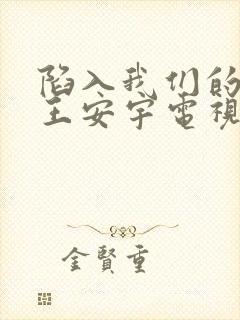 陷入我们的
王安宇電視
金賢重